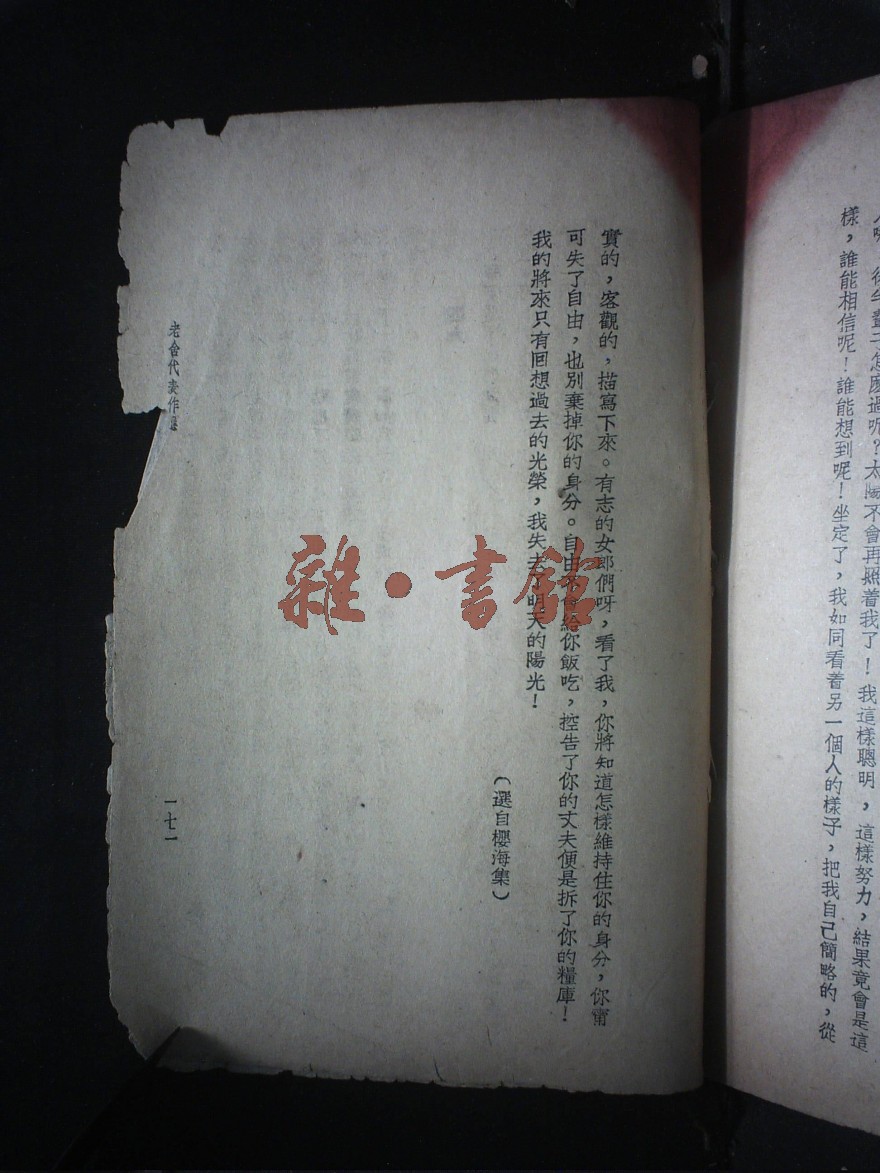 樣，誰能相信呢！誰能想到呢！坐定了，我如同看着另一個人的樣子，把我自己簡略的，從
實的，客觀的，描寫下來。有志的女郎們呀，看了我，你將知道怎樣維持住你的身分，你甯
可失了自由，也別棄掉你的身分。自由不會給你飯吃，控告了你的丈夫便是拆了你的糧庫！
我的將來只有回想過去的光榮，我失去了明天的陽光！
（選自櫻海集）
老舍代表作選
一七一
雜·書館